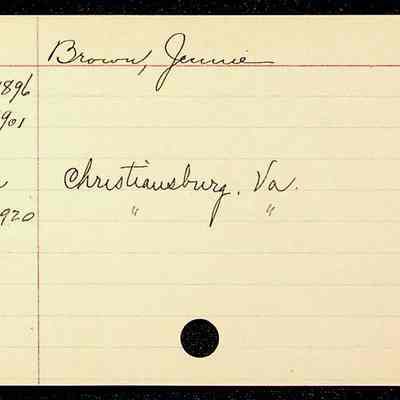 Brown, Jennie
1896
1901
Christiansburg, Va.
1920 " "